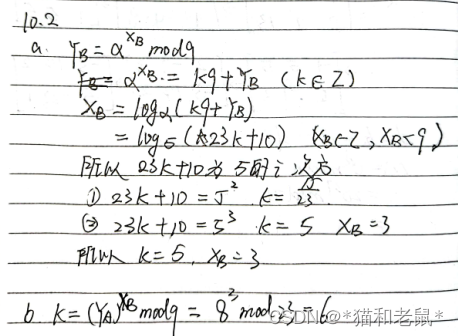 10.2
a. Y_B = α^{X_B} mod q
α^{X_B} = kq + Y_B (k∈Z)
X_B = log_α(kq + Y_B)
= log_5(23k+10) (X_B∈Z, X_B<q)
所以 23k+10为5的i次方
① 23k+10 = 5^2 k = 15/23
② 23k+10 = 5^3 k = 5 X_B = 3
所以 k = 5, X_B = 3
b K = (Y_A)^{X_B} mod q = 8^3 mod 23 = 6
CSDN @*猫和老鼠*